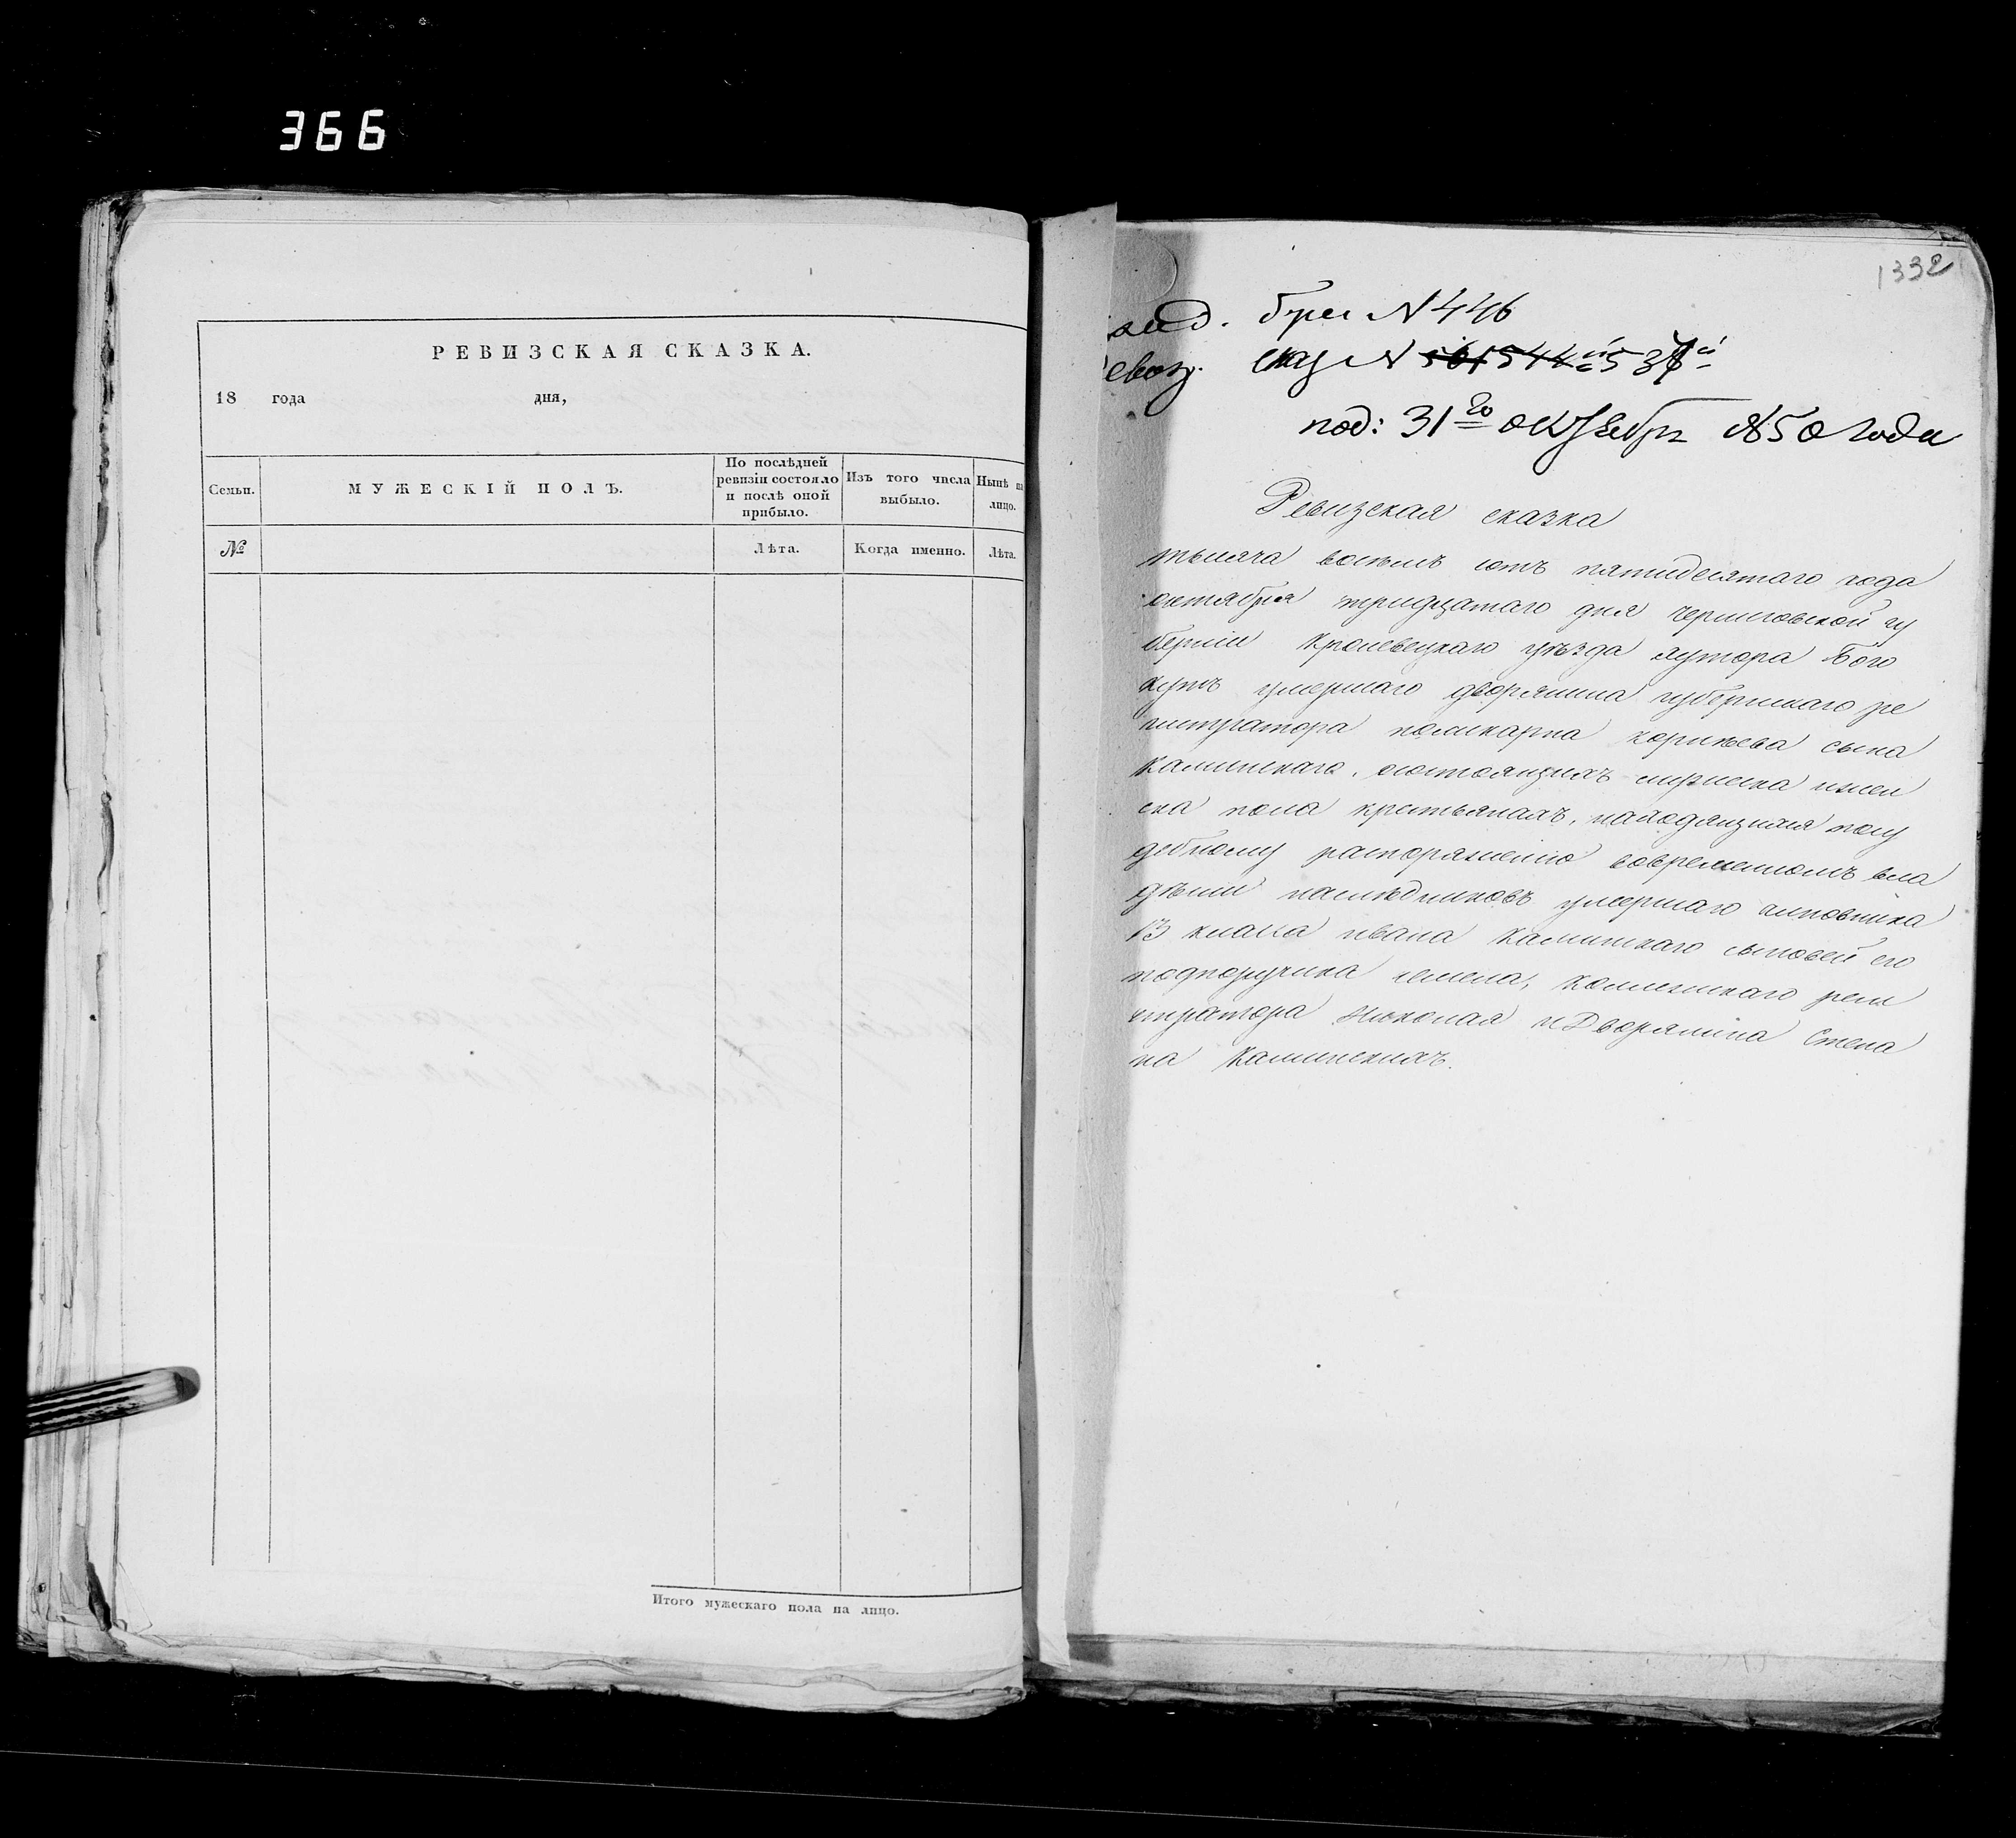 366
РЕВИЗСКАЯ СКАЗКА.
18 года дня,
Семьи.
МУЖЕСКІЙ ПОЛЪ.
По послѣдней
ревизіи состояло
и послѣ оной
прибыло.
Изъ того числа
выбыло.
Нынѣ на
лицо.
№
Лѣта.
Когда именно.
Лѣта.
Итого мужескаго пола на лицо.
1332
N 446
N
под: 31го октября 1850 года
Ревизская сказка
тысяча восемь сотъ пятидесятаго года
октября тридцатаго дня черниговской гу
берніи Кролевецкаго уѣзда хутора Бого
умершаго дворянина губернскаго ре
гистратора поликарпа корнѣева сына
Каминскаго, состоящихъ мужеска ижен
ска пола крестьянахъ, находящихся посу
дебному распоряженію вовременномъ вла
дѣніи наслѣдниковъ умершаго чиновника
13 класса ивана Каминскаго сыновей его
подпоручика семена, Колежскаго реги
стратора Николая и Дворянина Степа
на Каминскихъ.